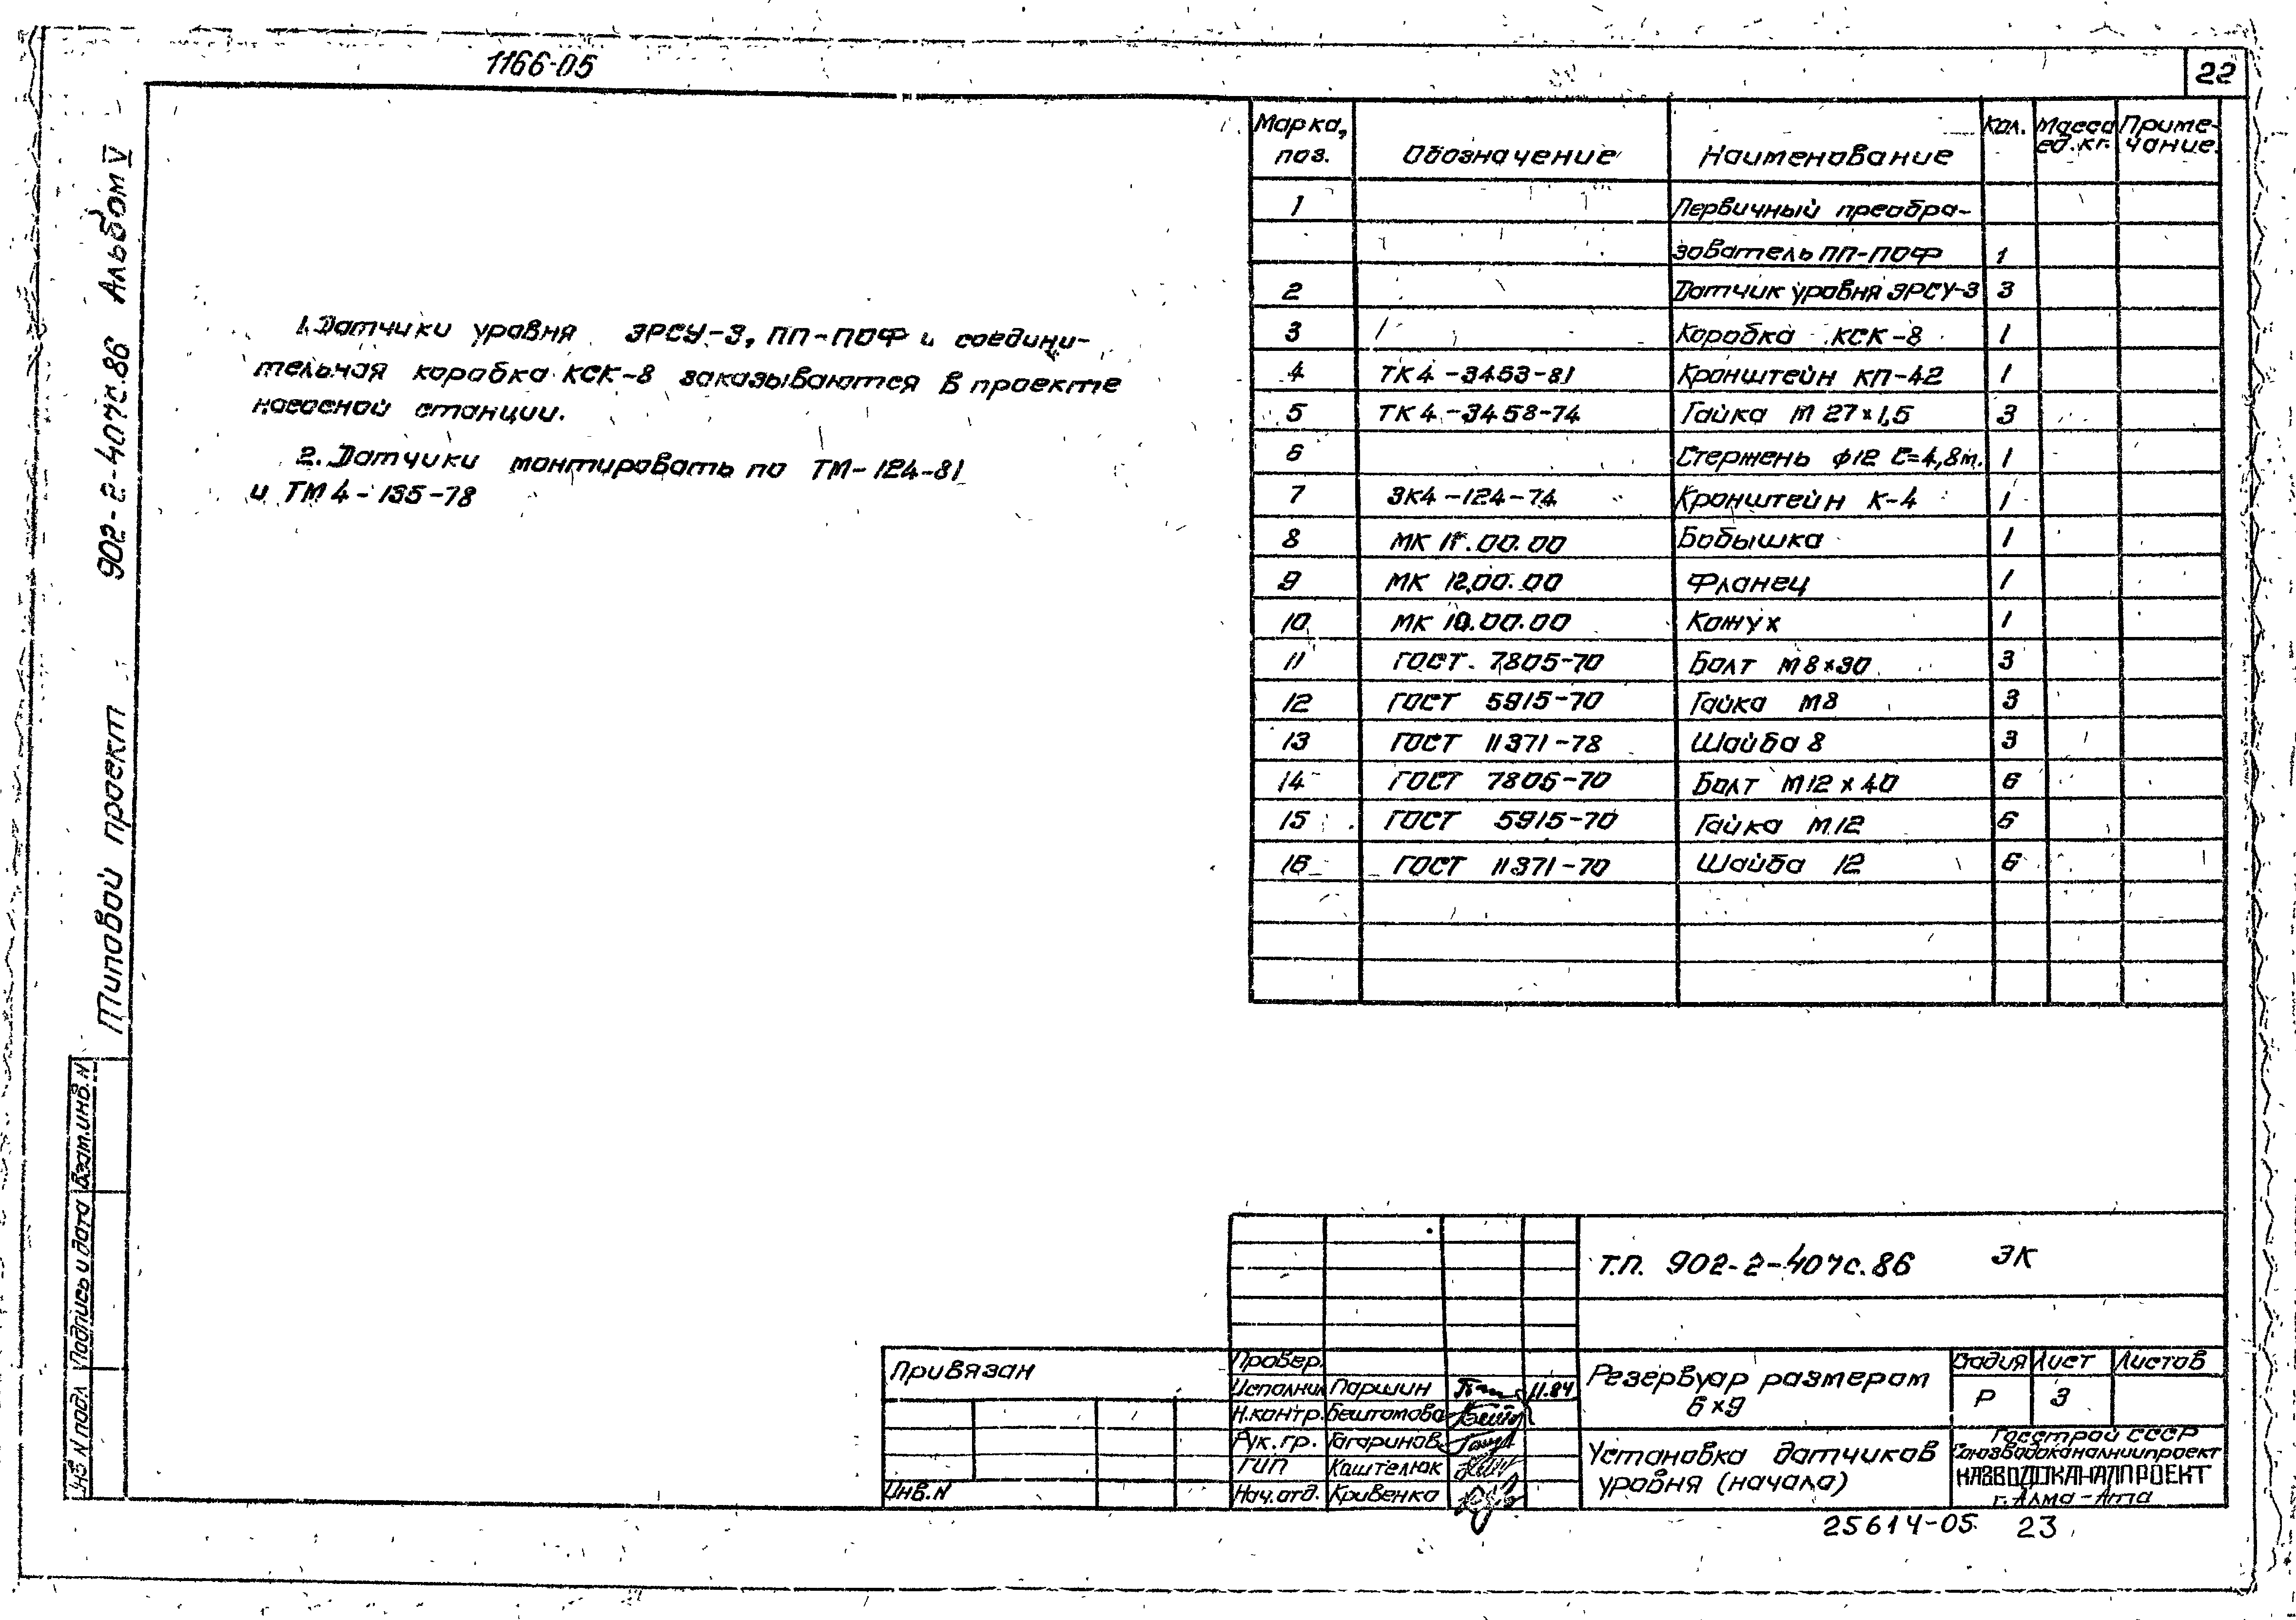 1166-05
22
Типовой проект 902-2-407с.86 Альбом V
1. Датчики уровня ЭРСУ-3, ПП-ПОФ и соедини-
тельная коробка КСК-8 заказываются в проекте
насосной станции.
2. Датчики монтировать по ТМ-124-81
и ТМ4-135-78
Марка, поз. Обозначение Наименование Кол. Масса ед.кг. Приме-чание.
1 Первичный преобра-
зователь ПП-ПОФ 1
2 Датчик уровня ЭРСУ-3 3
3 Коробка КСК-8 1
4 ТК4-3453-81 Кронштейн КП-42 1
5 ТК4-3458-74 Гайка М27×1,5 3
6 Стержень ф12 ℓ=4,8м. 1
7 ЗК4-124-74 Кронштейн К-4 1
8 МК 11.00.00 Бобышка 1
9 МК 12.00.00 Фланец 1
10 МК 10.00.00 Кожух 1
11 ГОСТ 7805-70 Болт М8×30 3
12 ГОСТ 5915-70 Гайка М8 3
13 ГОСТ 11371-78 Шайба 8 3
14 ГОСТ 7805-70 Болт М12×40 6
15 ГОСТ 5915-70 Гайка М12 6
16 ГОСТ 11371-70 Шайба 12 6
Инв N подл Подпись и дата Взам.инв.N
Т.П. 902-2-407с.86 ЭК
Привязан
Инв.N
Провер.
Исполнил Паршин 11.84
Н.контр. Бештомова
Рук.гр. Гагаринов
ГИП Каштелюк
Нач.отд. Кривенко
Резервуар размером
6×9
Стадия Лист Листов
Р 3
Установка датчиков
уровня (начало)
Госстрой СССР
Союзводоканалниипроект
КАЗВОДОКАНАЛПРОЕКТ
г. Алма-Ата
25614-05 23